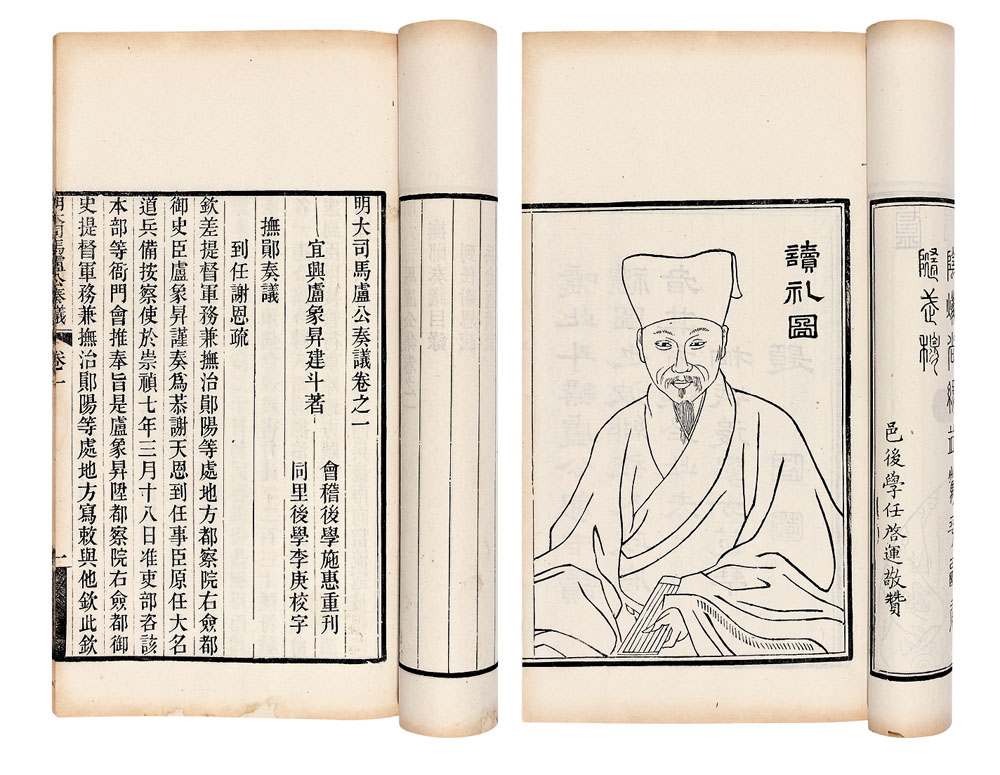 明大司馬盧公奏議卷之一
宜興盧象昇建斗著
會稽後學施惠重刊
同里後學李庚校字
撫鄖奏議
到任謝恩疏
欽差提督軍務兼撫治鄖陽等處地方都察院右僉都
御史臣盧象昇謹奏爲恭謝天恩到任事臣原任大名
道兵備按察使於崇禎七年三月十八日准吏部咨該
本部等衙門會推奉旨是盧象昇陞都察院右僉都御
史提督軍務兼撫治鄖陽等處地方寫敕與他欽此欽
明大司馬盧公奏議
卷一
一
讀礼圖
邑後學任啓運敬贊